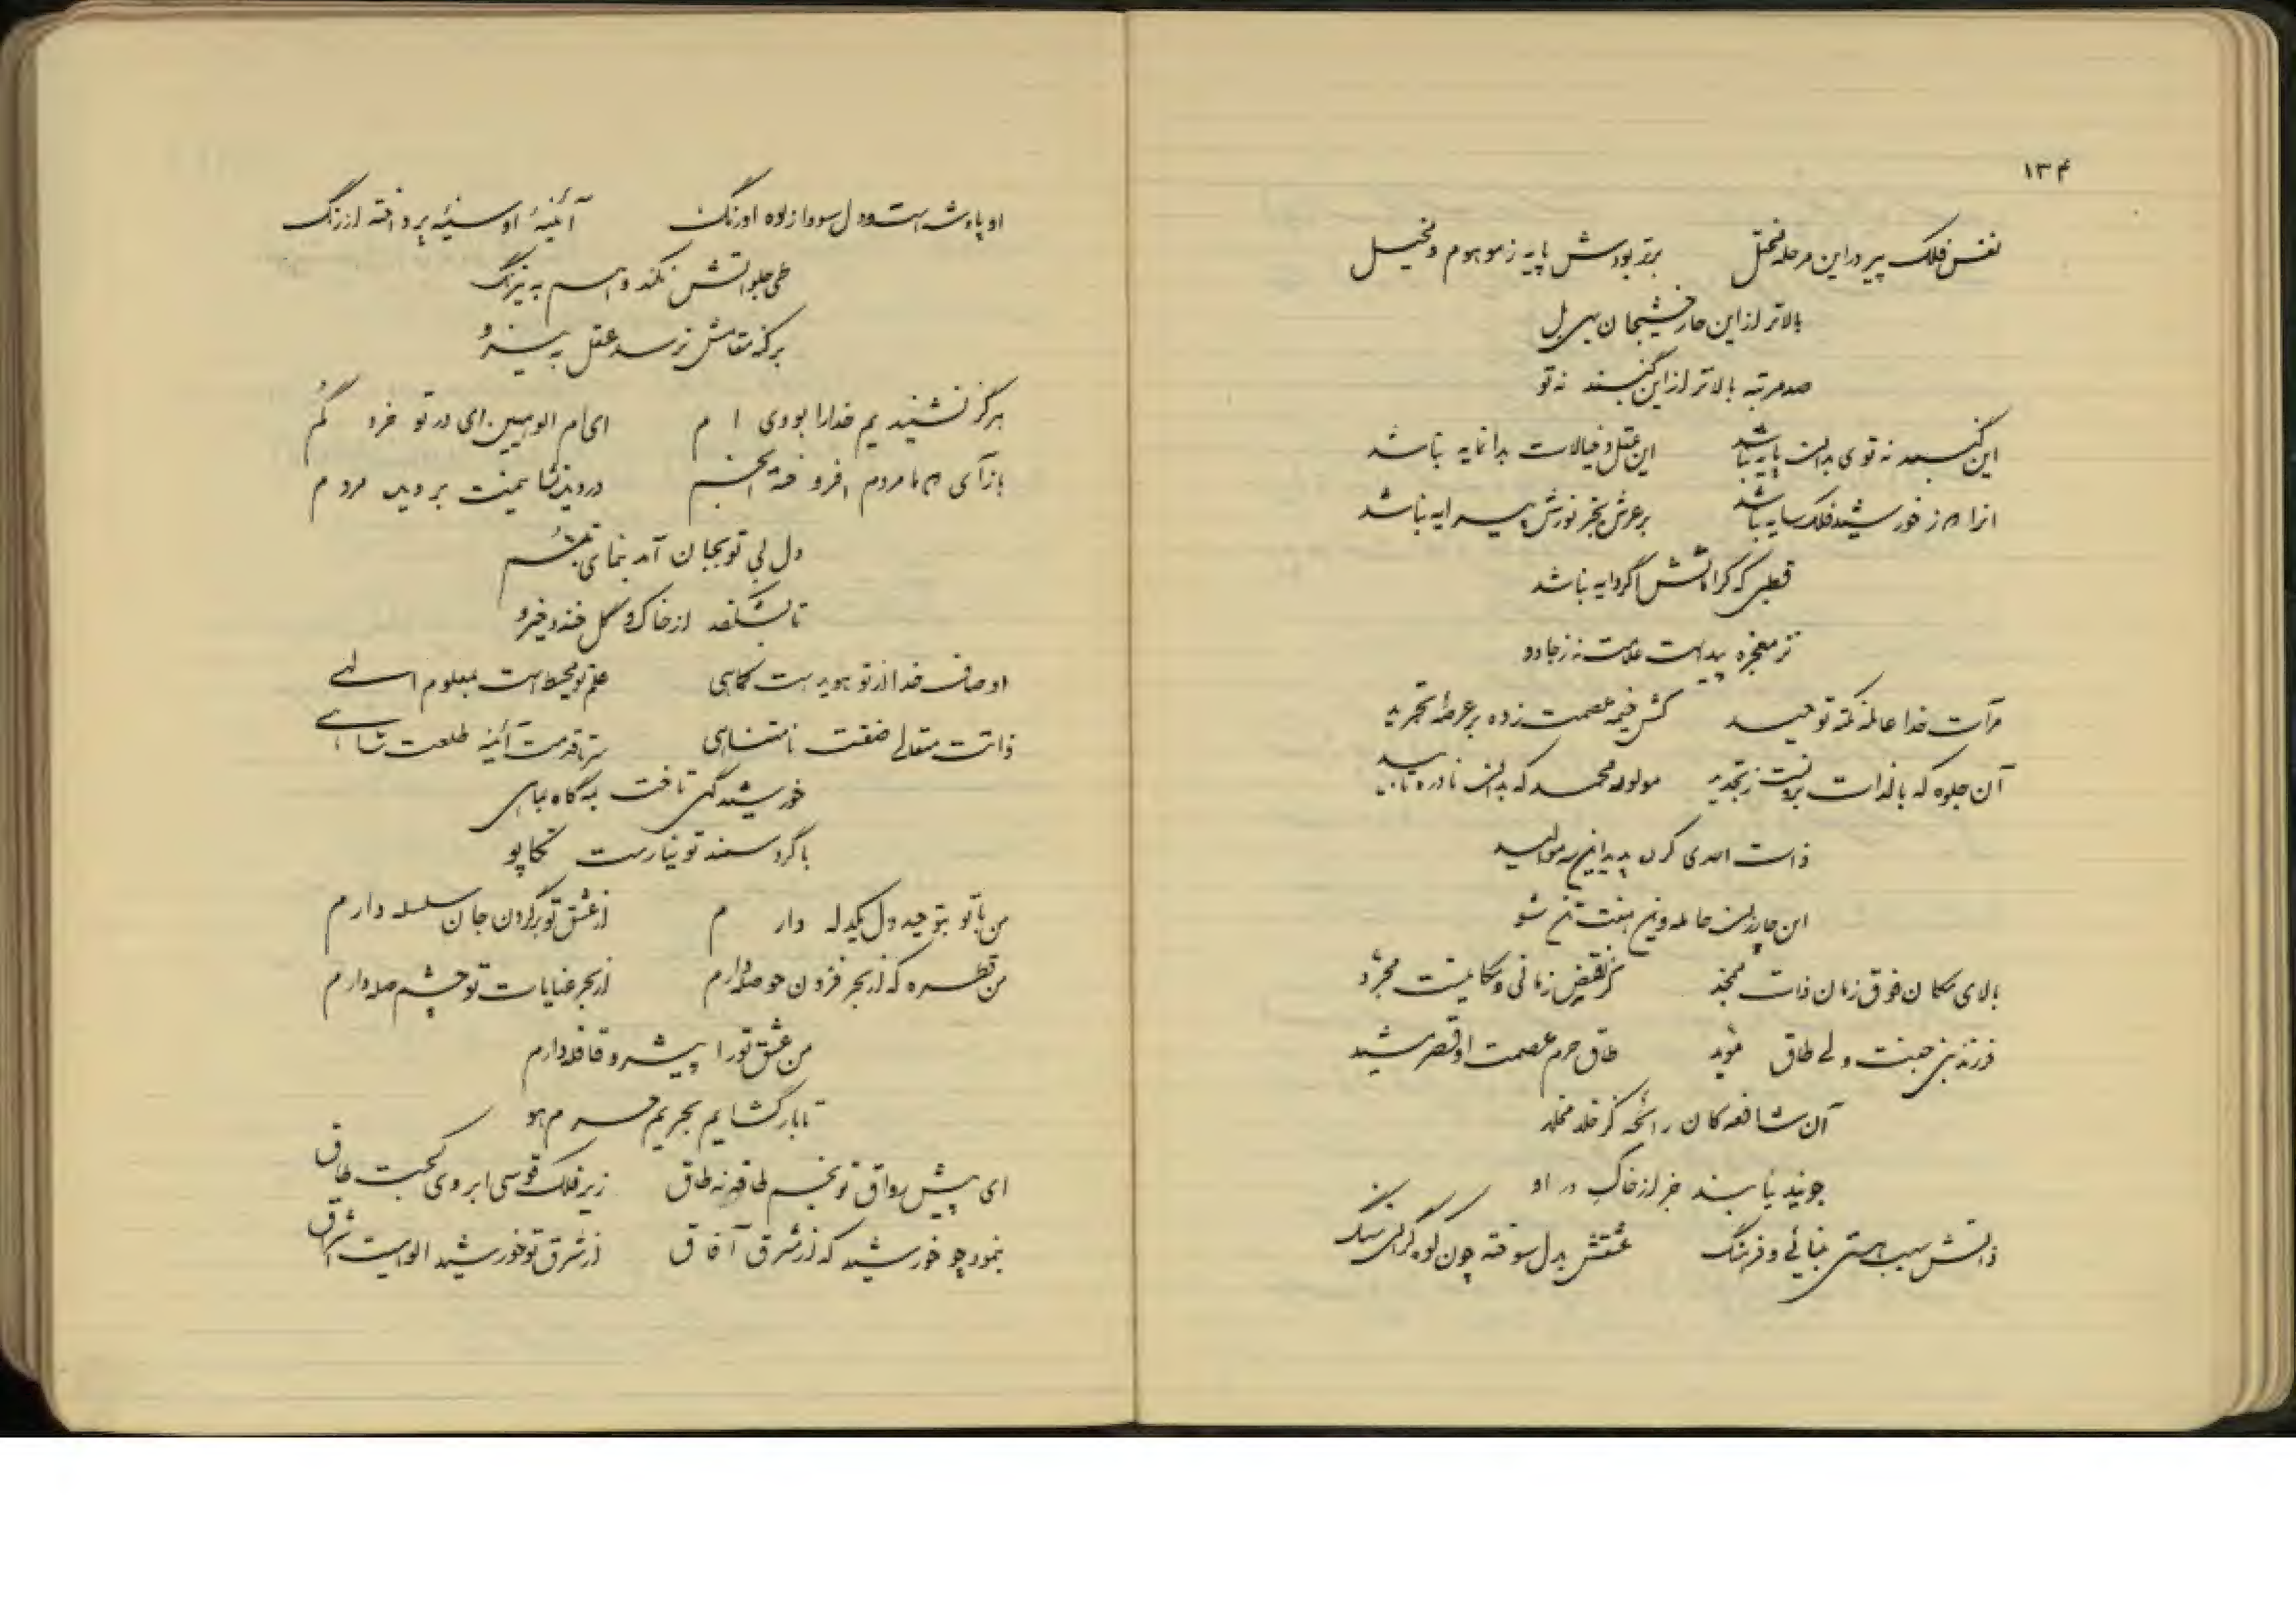 ۱۳۴
نفس فلک پیر در این مرحله مختل برتر بودش پایه ز موهوم و مخیل
بالاتر از این چار خشیجان بهی بل
صد مرتبه بالاتر از این گنبد نه تو
این گنبد نه توی بدان پایه نباشد این عقل و خیالات بدانمایه نباشد
انرا که ز خورشید فلک سایه نباشد بر عرش بجز نورش پیرایه نباشد
قطبی که کراماتش اگر دایه نباشد
نز معجزه پیداست علامت نه ز جادو
مرآت خدا عالمه نکته توحید کش خیمه عصمت زده بر عرصه تجرید
آن جلوه که بالذات برونست ز تجدید مولود محمد که بدان نادره تایید
ذات احدی کرد پدید این سه موالید
این چار زن حامله وین هفت تن شو
بالای مکان فوق زمان ذات ممجد کز نقیض زمانی و مکانیست مجرد
فرزند نبی جفت ولی طاق موید طاق حرم عصمت او قصر مشید
آن شافعه کان رائحه کز خلد مخلد
جویند نیابند جز از خاک در او
ذاتش سبب هستی بینائی و فرهنگ عشقش بدل سوخته چون کوه گران سنگ
او پادشه است و دل سودا زده اورنگ آئینهٔ او سینهٔ پرداخته از زنگ
طی جلواتش نکند وهم به نیرنگ
بر کنه مقامش نرسد عقل به نیرو
هرگز نشنیدیم خدا را بودی ام ای ام الوهیین ای در تو خرد گم
بازآی که با مردم افروخته انجم در دیدن شاهیت بر دیده مردم
دل بی تو بجان آمد بنمای تبسم
تا بشکفد از خاک و گل خنده و خیرو
اوصاف خدا از تو هویداست کماهی علم تو محیط است بمعلوم الهی
ذاتت متعالی صفتت نامتناهی سر تا قدمت آئینه طلعت شاهی
خورشید گهی تاخت به گاه بباهی
با گرد سمند تو نیارست تکاپو
من با تو بتوحید دل یکدله دارم از عشق تو بر گردن جان سلسله دارم
من قطره که از بحر فزون حوصله دارم از بحر عنایات تو چشم صله دارم
من عشق تو را پیشرو قافله دارم
تا بار گشایم بحریم حرم هو
ای پیش رواق تو بخم طاقه نه طاق زیر فلک قوسی ابروی کجت طاق
بنمود چو خورشید که از شرق آفاق از شرق تو خورشید الوهیت اشراق